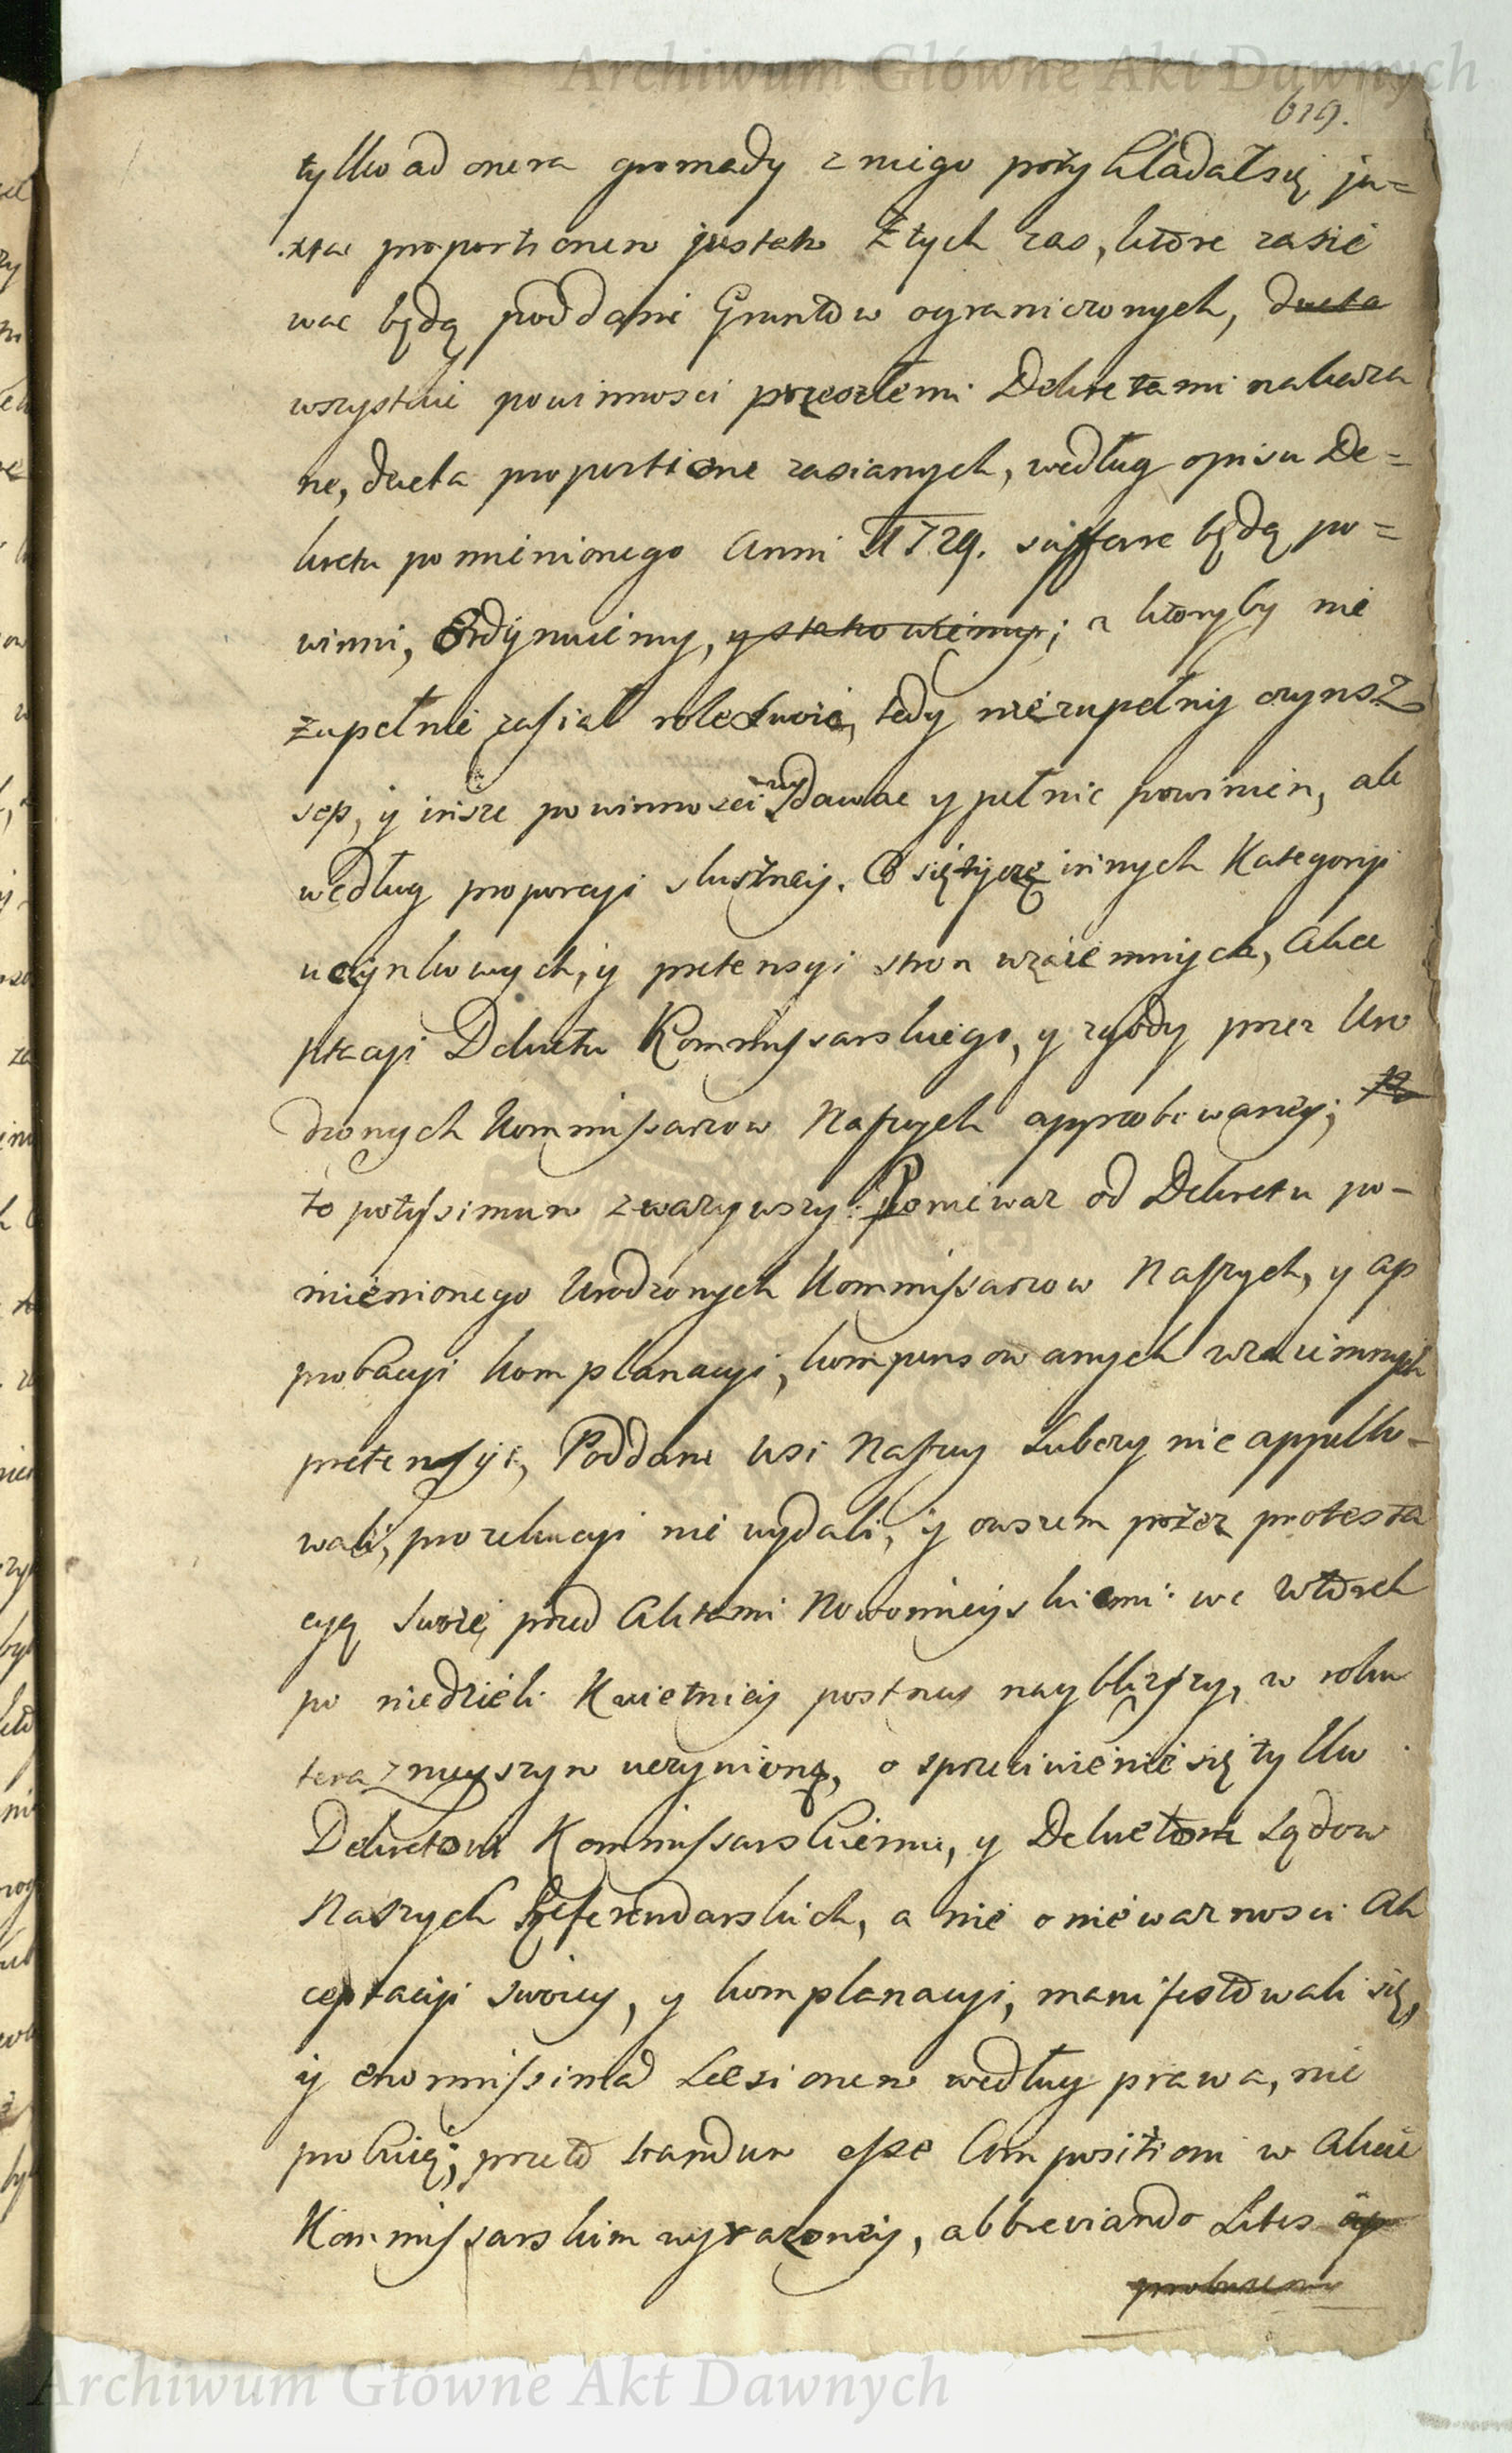 Archiwum Główne Akt Dawnych
619.
tylko ad onera gromady z niego przykładał się ju=
xta proportionem justam Z tych zas, ktore zasie
wac będą poddani Gruntow ograniczonych, ducta
wszystkie powinnosci przeszłemi Dekretami nakaza
ne, ducta proportione zasianych, według opisu De=
kretu pomienionego Anni 1729. suffere będą po=
winni, Ordynuiemy, y stanowiemy; a ktoryby nie
zupełnie zasiał role swoie, tedy niezupełny czynsz
sep, y insze powinnosci wydawac y pełnic powinien, ale
według proporcyi słuszney. Co się tycze innych Kategoryi
uczynkowych, y pretensyi stron wzaiemnych, Akce
ptacyi Dekretu Kommissarskiego, y zgody przez Uro
dzonych Kommissarzow Naszych approbowaney;
to potyssimum zwazywszy: Poniewaz od Dekretu po-
mienionego Urodzonych Kommissarzow Naszych, y ap
probacyi komplanacyi, kompensowanych wzaiemnych
pretensyi, Poddani Wsi Naszey Lubczy nie appello-
wali, prozekucyi nie wydali, y owszem przez protesta
cyą swoię przed Aktami Nowomieyskiemi we wtorek
po niedzieli Kwietniey postney naybliższy, w roku
teraznieyszym uczynioną, o sprzeciwienie się tylko
Dekretowi Kommissarskiemu, y Dekretom Sądow
Naszych Referendarskich, a nie o niewaznosci Ak
ceptacyi swoiey, y komplanacyi, manifestowali się,
y enormissimad Laesionem według prawa, nie
probuią; przeto standum esse Compositioni w Akcie
Kommissarskim wyrazoney, abbreviando Lites ap
probuiemy
Archiwum Główne Akt Dawnych